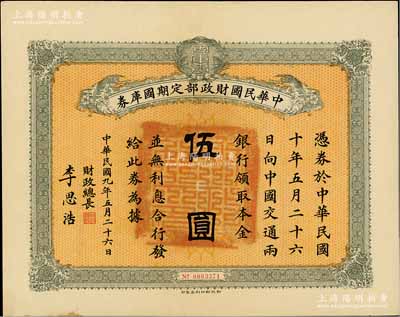 上海陽明拍賣
中華民國財政部定期國庫券
憑券於中華民國
十年五月二十六
日向中國交通兩
銀行領取本金
伍圓
並無利息合行發
給此券為據
中華民國九年五月二十六日
財政總長
李思浩
Nº 0003371
上海陽明拍賣